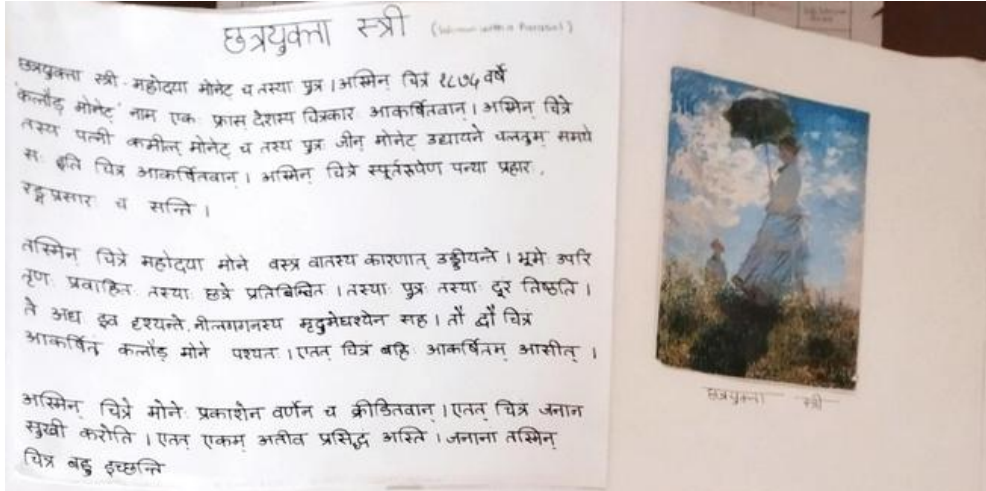 छत्रयुक्ता स्त्री (Woman with a Parasol)
छत्रयुक्ता स्त्री - महोदया मोनेट् च तस्या पुत्र । अस्मिन् चित्रं १८७५ वर्षे
'कलौड़ मोनेट्' नाम एकः फ्रास् देशस्य चित्रकार आकर्षितवान् । अस्मिन् चित्रे
तस्य पत्नी कामील् मोनेट् च तस्य पुत्रः जीन् मोनेट् उद्यायने चलतुम् समये
सः इति चित्र आकर्षितवान् । अस्मिन् चित्रे स्पूर्तरूपेण पन्था प्रहार,
रङ्गप्रसार च सन्ति ।
तस्मिन् चित्रे महोदया मोने वस्त्र वातस्य कारणात् उड्डीयन्ते । भूमे उपरि
तृणः प्रवाहित तस्याः छत्रे प्रतिबिम्बित । तस्याः पुत्रः तस्याः दूर तिष्ठति ।
ते अध इव दृश्यन्ते, नीलगगनस्य मृदुमेघश्येन सह । तौ द्वौ चित्रं
आकर्षितं कलौड़ मोने पश्यतः । एतत् चित्रं बहि आकर्षितम् आसीत् ।
अस्मिन् चित्रे मोनेः प्रकाशेन वर्णेन च क्रीडितवान् । एतत् चित्र जनान
सुखी करोति । एतत् एकम् अतीव प्रसिद्ध अस्ति । जनाना तस्मिन्
चित्र बहु इच्छन्ति
छत्रयुक्ता स्त्री